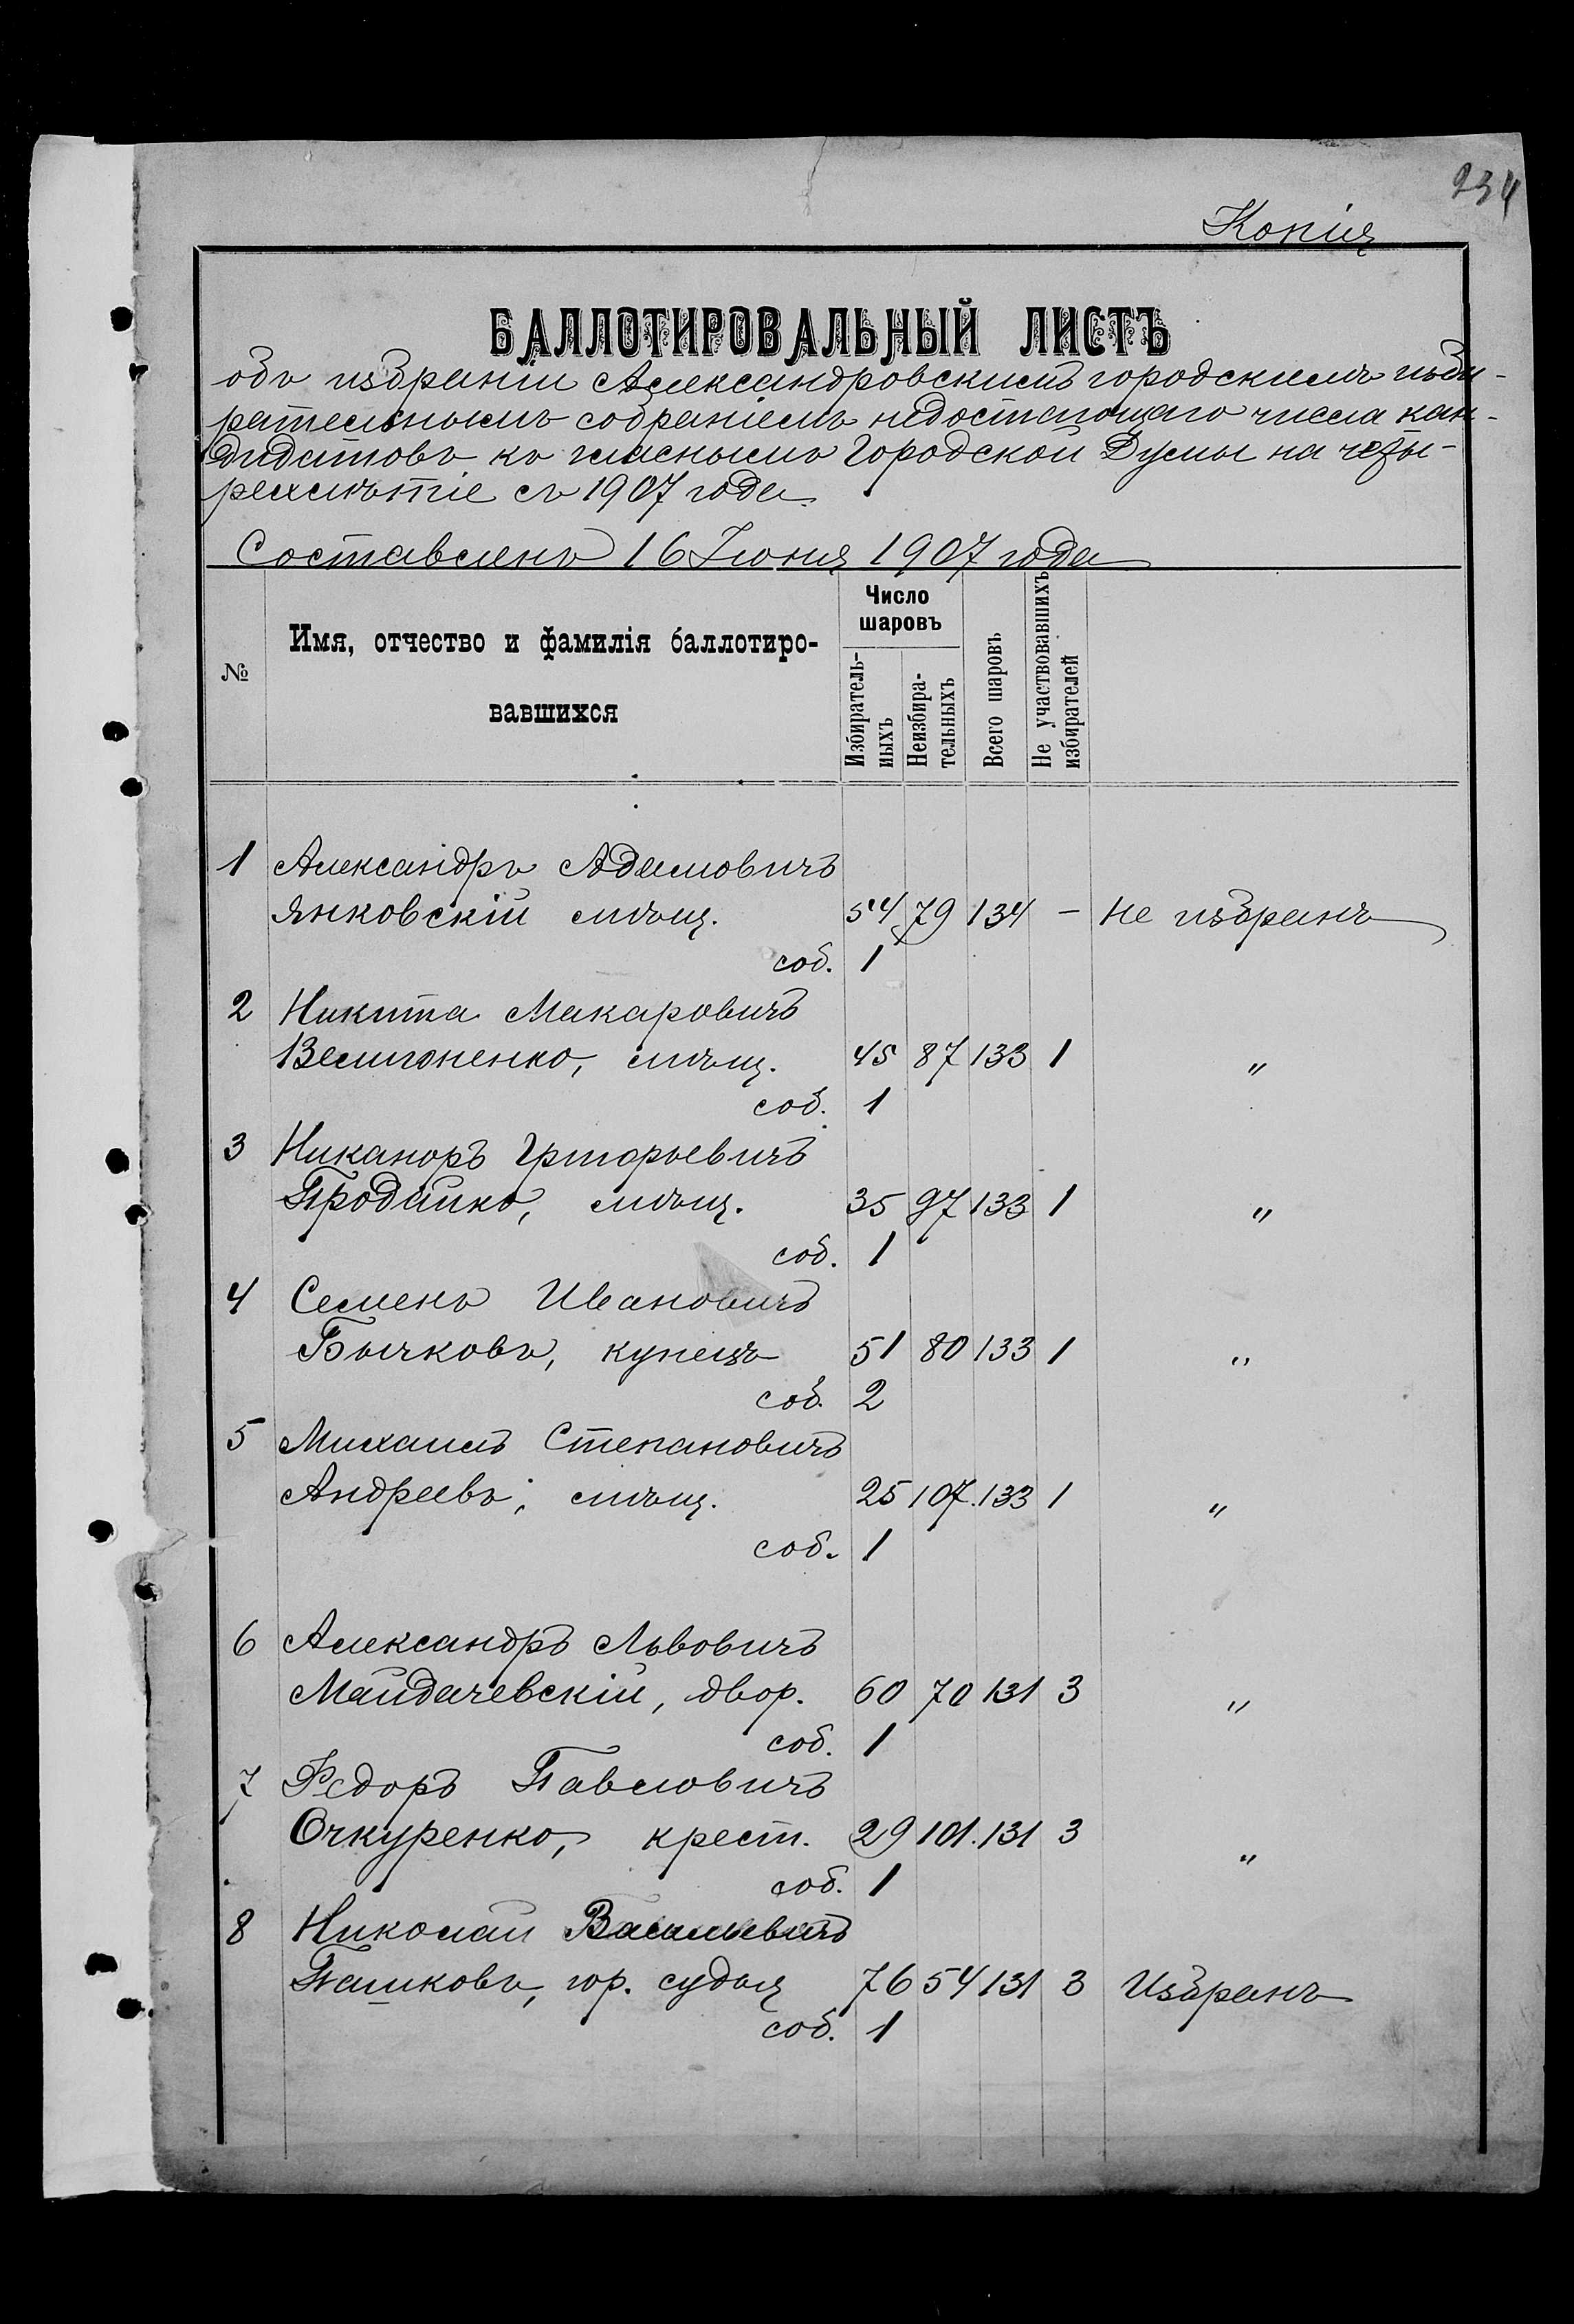 234
Копія
БАЛЛОТИРОВАЛЬНЫЙ ЛИСТЪ
объ избраніи Александровскимъ городскимъ изби-
рательнымъ собраніемъ недостающаго числа кан-
дидатовъ къ гласнымъ Городской Думы на четы-
рехлѣтіе съ 1907 года.
Составленъ 16 Іюня 1907 года
№
Имя, отчество и фамилія баллотиро-
вавшихся
Число
шаровъ
Избиратель-
ныхъ
Неизбира-
тельныхъ
Всего шаровъ
Не участвовавшихъ
избирателей
1 Александръ Адамовичъ
Янковскій мѣщ. 54 79 134 – не избранъ
соб. 1
2 Никита Макаровичъ
Велигоненко, мѣщ. 45 87 133 1 "
соб. 1
3 Никаноръ Григорьевичъ
Продайко, мѣщ. 35 97 133 1 "
соб. 1
4 Семенъ Ивановичъ
Бычковъ, купецъ 51 80 133 1 "
соб. 2
5 Михаилъ Степановичъ
Андреевъ, мѣщ. 25 107. 133 1 "
соб. 1
6 Александръ Львовичъ
Майдачевскій, двор. 60 70 131 3 "
соб. 1
7 Федоръ Павловичъ
Очкуренко, крест. 29 101. 131 3 "
соб. 1
8 Николай Васильевичъ
Пашковъ, гор. судья 76 54 131 3 Избранъ
соб. 1